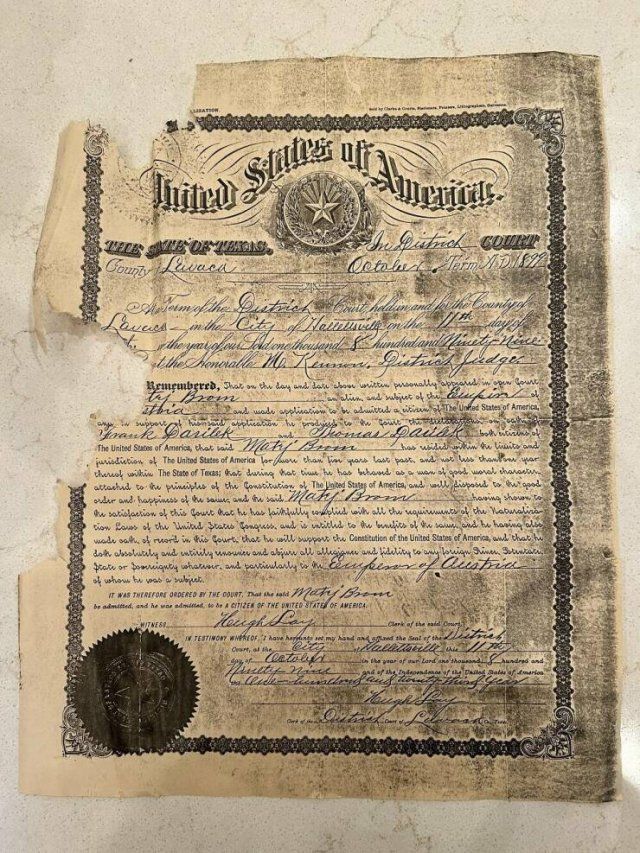 LIZATION. Sold by Clarke & Courts, Stationers, Printers, Lithographers, Galveston.
United States of America.
THE STATE OF TEXAS. In District COURT
County Lavaca October Term A.D. 1899
At Term of the District Court, holden in and for the County of
Lavaca in the City of Hallettsville on the 11th day of
the year of our Lord one thousand 8 hundred and Ninety Nine
the Honorable M. Kennon, District Judge
Remembered, That on the day and date above written personally appeared in open Court
ty Brom an alien, and subject of the Empire of
and made application to be admitted a citizen of The United States of America,
and in support of his said application he produced to the Court the declarations, on oath of
Frank Darilek and Thomas Darilek both citizens of
The United States of America, that said Maty Brom has resided within the limits and
jurisdiction of The United States of America for more than five years last past, and not less than one year
thereof within The State of Texas; that during that time he has behaved as a man of good moral character,
attached to the principles of the Constitution of The United States of America, and well disposed to the good
order and happiness of the same; and the said Maty Brom having shown to
the satisfaction of this Court that he has faithfully complied with all the requirements of the Naturaliza-
tion Laws of the United States Congress, and is entitled to the benefits of the same, and he having also
made oath, of record in this Court, that he will support the Constitution of the United States of America, and that he
doth absolutely and entirely renounce and abjure all allegiance and fidelity to any foreign Prince, Potentate,
State or Sovereignty whatever, and particularly to the Emperor of Austria
of whom he was a subject.
IT WAS THEREFORE ORDERED BY THE COURT, That the said Maty Brom
be admitted, and he was admitted, to be a CITIZEN OF THE UNITED STATES OF AMERICA.
WITNESS Hugh Lay Clerk of the said Court.
IN TESTIMONY WHEREOF, I have hereunto set my hand and affixed the Seal of the District
Court, at the City Hallettsville this 11th
day of October in the year of our Lord one thousand 8 hundred and
Ninety Nine and of the Independence of the United States of America
One hundred and twenty third Year
Hugh Lay
Clerk of the District Court of Lavaca Co. Texas